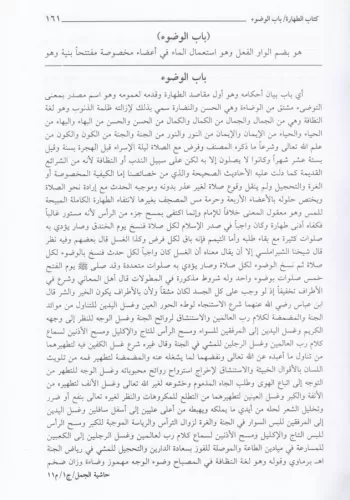 كتاب الطهارة/ باب الوضوء ١٦١
(باب الوضوء)
هو بضم الواو الفعل وهو استعمال الماء في أعضاء مخصوصة مفتتحاً بنية وهو
باب الوضوء
أي باب بيان أحكامه وهو أول مقاصد الطهارة وقدمه لعمومه وهو اسم مصدر بمعنى
التوضىء مشتق من الوضاءة وهي الحسن والنضارة سمي بذلك لإزالته ظلمة الذنوب وهو لغة
النظافة وهي من الجمال والجمال من الكمال والكمال من الحكمة والحكمة من الحسن والحسن من
الحياء والحياء من الإيمان والإيمان من النور والنور من الجنة والجنة من الكون والكون من
علم الله تعالى وشرعاً ما ذكره المصنف وفرض مع الصلاة ليلة الإسراء قبل الهجرة بسنة وقيل
بستة عشر شهراً وكانوا لا يصلون إلا به لكن على سبيل الندب أو النظافة لأنه من الشرائع
القديمة كما دلت عليه الأحاديث الصحيحة والذي من خصائصنا إما الكيفية المخصوصة أو
الغرة والتحجيل ولم ينقل وقوع صلاة لغير عذر بدونه وموجبه الحدث مع إرادة نحو الصلاة
ويختص حلوله بالأعضاء الأربعة وحرمة مس المصحف بغيرها لانتفاء الطهارة الكاملة المبيحة
للمس وهو معقول المعنى خلافاً للإمام وإنما اكتفى بمسح جزء من الرأس لأنه مستور غالباً
فكفاه أدنى طهارة وكان واجباً في صدر الإسلام لكل صلاة فنسخ يوم الخندق وصار يؤدي به
صلوات كثيرة مع بقاء طلبه وأما التيمم فإنه باق لكل فرض وكذا الغسل قال بعضهم وفيه نظر
قال شيخنا الشبراملسي إلا أن يقال معناه أن الغسل كان واجباً لكل حدث فنسخ بالوضوء لكل
صلاة ثم نسخ الوضوء لكل صلاة وصار يؤدي به صلوات متعددة وقد صلى ﷺ يوم الفتح
خمس صلوات بوضوء واحد وله شروط مذكورة في المطولات قال أهل المعاني وشرع في
الأطراف تخفيفاً إذ لو وجب على كل الجسد لكان مشقاً ولأن بالأطراف يكون الخير والشر قال
ابن عباس رضي الله عنهما شرع الاستنجاء لوطء الحور العين وغسل اليدين للتناول من موائد
الجنة والمضمضة لكلام رب العالمين والاستنشاق لروائح الجنة وغسل الوجه للنظر إلى وجهه
الكريم وغسل اليدين إلى المرفقين للسواء ومسح الرأس للتاج والإكليل ومسح الأذنين لسماع
كلام رب العالمين وغسل الرجلين للمشي في الجنة وقال غيره شرع غسل الكفين فيه لتطهيرهما
من تناول ما أبعده عن الله تعالى ونفضهما لما يشغله عنه والمضمضة لتطهير فمه من تلويث
اللسان بالأقوال الخبيثة والاستنشاق لإخراج استرواح روائح محبوباته وغسل الوجه لتطهيره من
التوجه إلى اتباع الهوى وطلب الجاه المذموم وخشوعه لغير الله تعالى وغسل الأنف لتطهيره من
الأنفة والكبر وغسل العينين لتطهيرهما من التطلع للمكروهات والنظر لغيره تعالى بنفع أو ضر
وتخليل الشعر لحله من أيدي ما يملكه ويهبطه من أعلى عليين إلى أسفل سافلين وغسل اليدين
إلى المرفقين للبس السوار في الجنة وغرة لزوال الترأس والرياسة الموجبة للكبر وغسل اليدين
للبس التاج والإكليل ومسح الأذنين لسماع كلام رب العالمين وغسل الرجلين إلى الكعبين
للمسارعة في ميادين الطاعة والموصلة للفوز بسعادة الدارين والتحجيل للمشي في رياض الجنة
اهـ برماوي وقوله وهو لغة النظافة في المصباح وضوء الوجه مهموز وضاءة وزان ضخم
حاشية الجمل/ج١/م١١